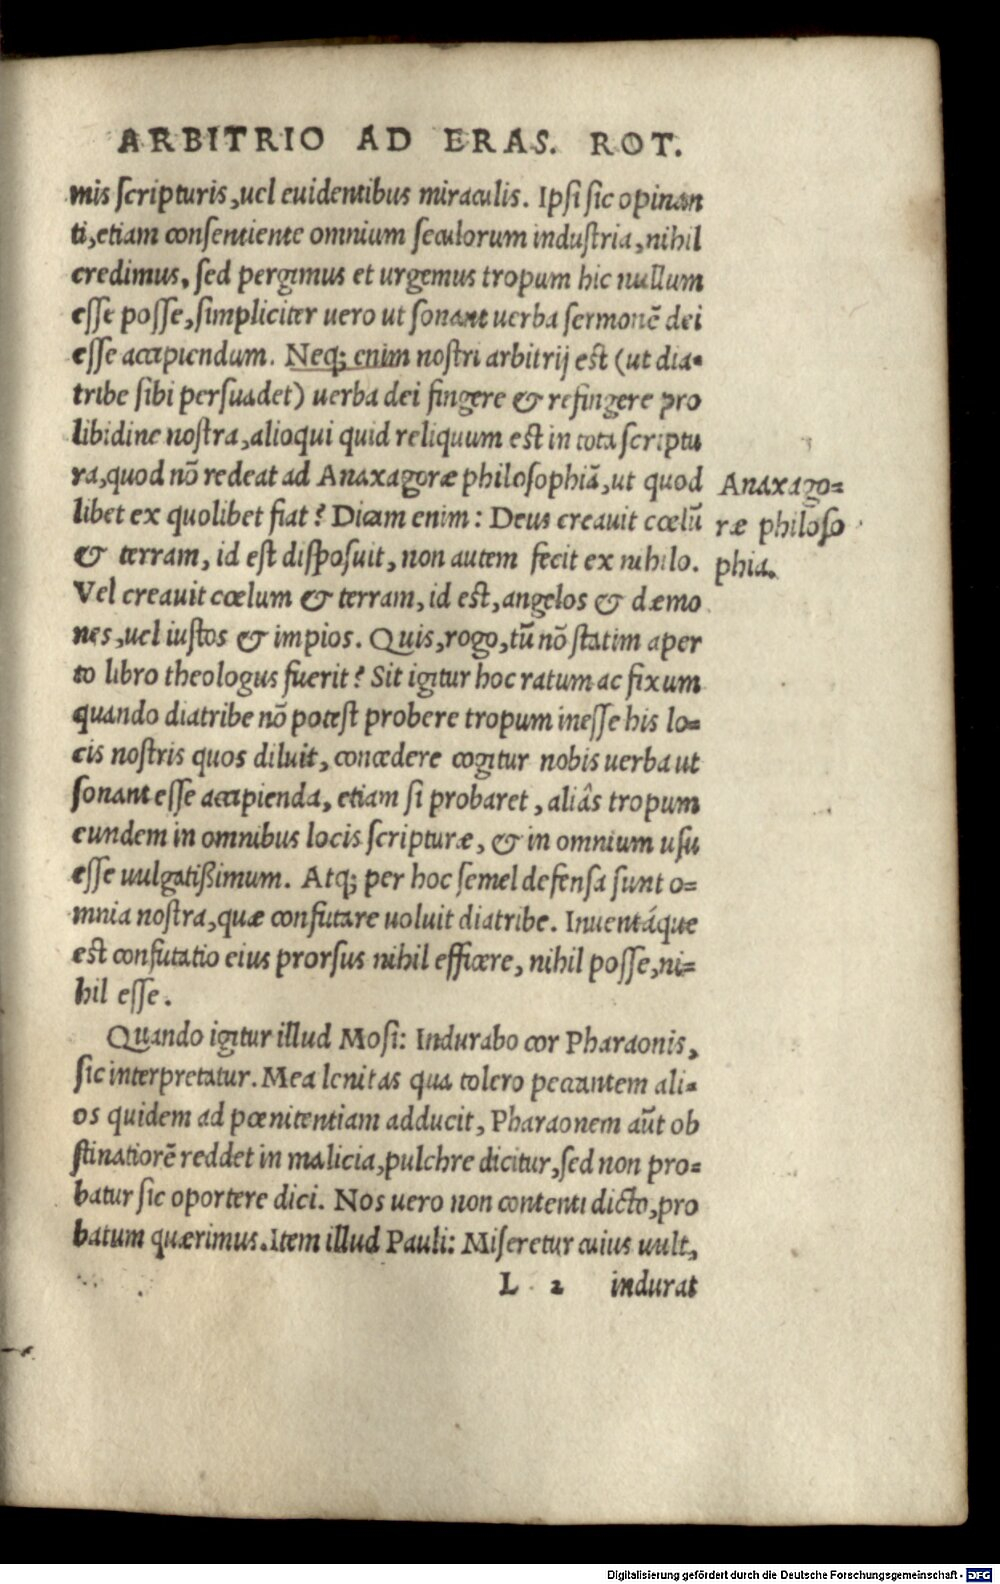 ARBITRIO AD ERAS. ROT.
mis scripturis, uel euidentibus miraculis. Ipsi sic opinan
ti, etiam consentiente omnium seculorum industria, nihil
credimus, sed pergimus et urgemus tropum hic nullum
esse posse, simpliciter uero ut sonant uerba sermonē dei
esse accipiendum. Neq; enim nostri arbitrij est (ut dia-
tribe sibi persuadet) uerba dei fingere & refingere pro
libidine nostra, alioqui quid reliquum est in tota scriptu
ra, quod nō redeat ad Anaxagoræ philosophiā, ut quod
libet ex quolibet fiat? Dicam enim: Deus creauit cœlū
& terram, id est disposuit, non autem fecit ex nihilo.
Vel creauit cœlum & terram, id est, angelos & dæmo
nes, uel iustos & impios. Quis, rogo, tū nō statim aper
to libro theologus fuerit? Sit igitur hoc ratum ac fixum
quando diatribe nō potest probere tropum inesse his lo=
cis nostris quos diluit, concedere cogitur nobis uerba ut
sonant esse accipienda, etiam si probaret, aliâs tropum
eundem in omnibus locis scripturæ, & in omnium usu
esse uulgatißimum. Atq; per hoc semel defensa sunt o=
mnia nostra, quæ confutare uoluit diatribe. Inuentáque
est confutatio eius prorsus nihil efficere, nihil posse, ni=
hil esse.
Quando igitur illud Mosi: Indurabo cor Pharaonis,
sic interpretatur. Mea lenitas qua tolero peccantem ali=
os quidem ad pœnitentiam adducit, Pharaonem aūt ob
stinatiorē reddet in malicia, pulchre dicitur, sed non pro=
batur sic oportere dici. Nos uero non contenti dicto, pro
batum quærimus. Item illud Pauli: Miseretur cuius uult,
L 2 indurat
Anaxago=
ræ philoso
phia.
Digitalisierung gefördert durch die Deutsche Forschungsgemeinschaft - DFG